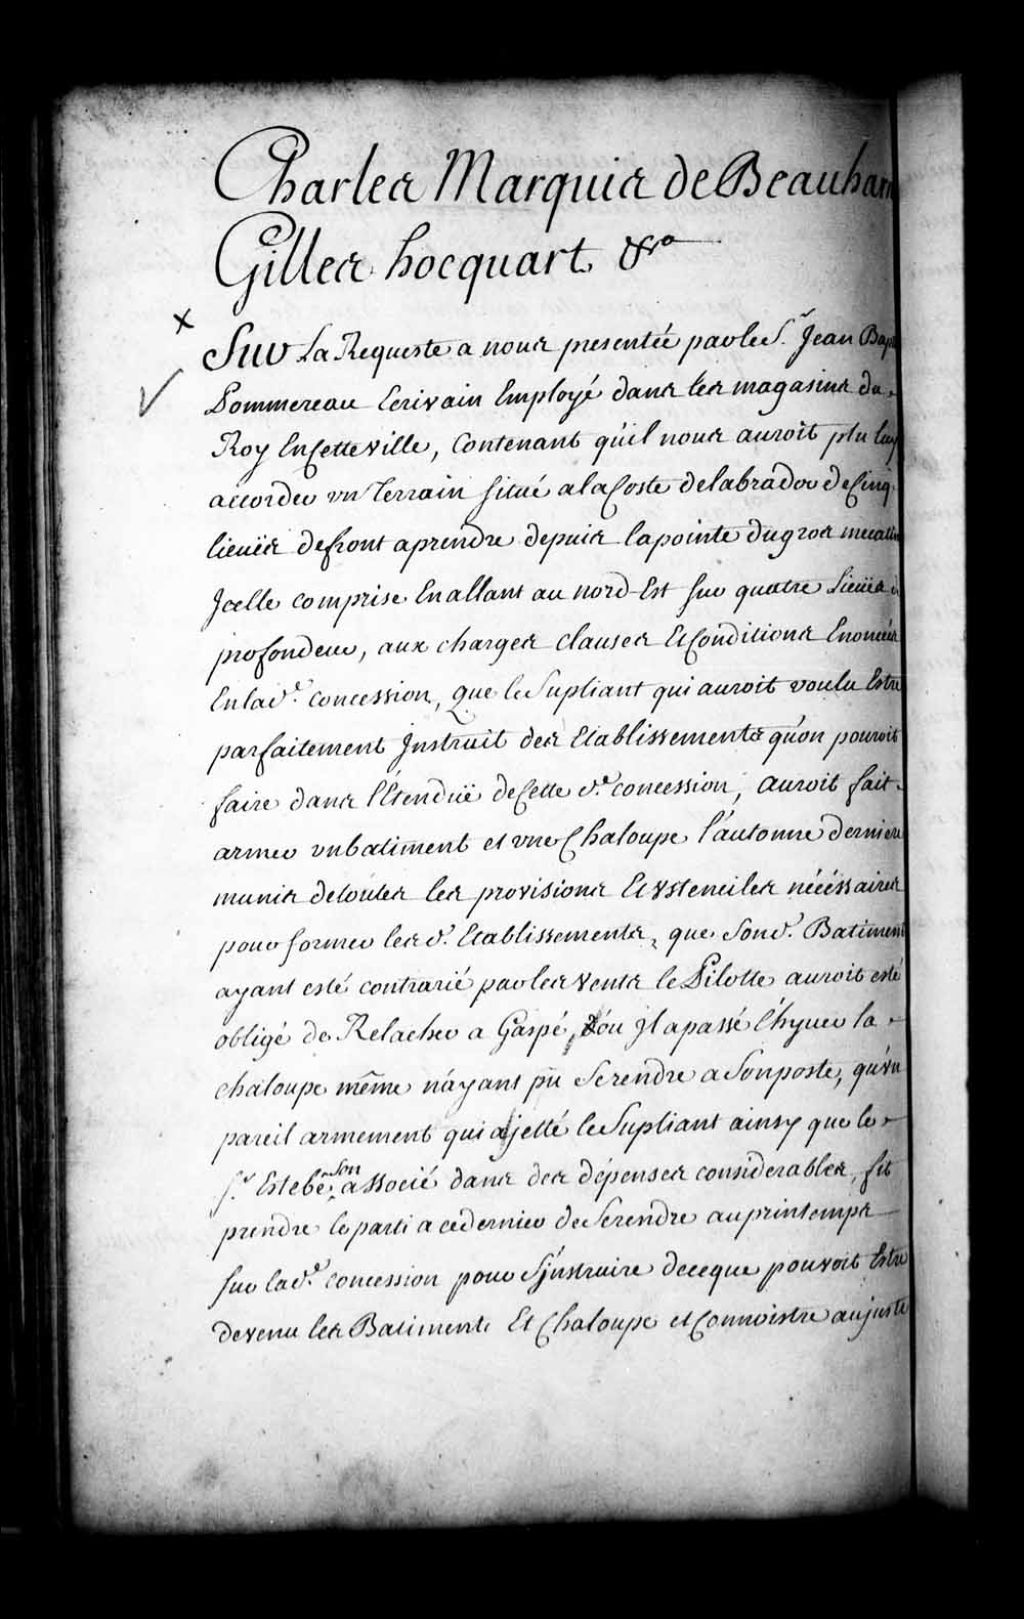 Charles Marquis de Beauhar
Gilles hocquart &ra
Sur La Requeste a nous presentée par le S.r Jean Bap
Pommereau Ecrivain Employé dans les magasins du
Roy En Cette ville, Contenant qu'il nous auroit plu luy
accorder un Terrain situé a la Coste de labrador de Cinq
lieües de front a prendre depuis la pointe du gros mecatin
Jcelle comprise En allant au nord Est sur quatre Lieües
profondeur, aux charges clauses Et Conditions Enoncées
En lad.e concession, que le Supliant qui auroit voulu Estre
parfaitement Jnstruit des Etablissements qu'on pouroit
faire dans l'Etendüe de Cette d.e concession, auroit fait
armer un batiment et une Chaloupe l'autonne derniere
munis de toutes les provisions Et Ustenciles nécéssaires
pour former les d. Etablissements, que Son d. Batiment
ayant esté contrarié par les Vents le Pilotte auroit esté
obligé de Relacher a Gaspé, d'ou Jl a passé l'hyver la
chaloupe même n'ayant pû Se rendre a Son poste, qu'un
pareil armement qui a jetté le Supliant ainsy que le
S.r Estebe son associé dans des dépenses considerables, fit
prendre le parti a ce dernier de Se rendre au printemps
sur lad.e concession pour S'jnstruire de ce que pouvoit Estre
devenu les Batiments Et Chaloupe et Connoistre au juste